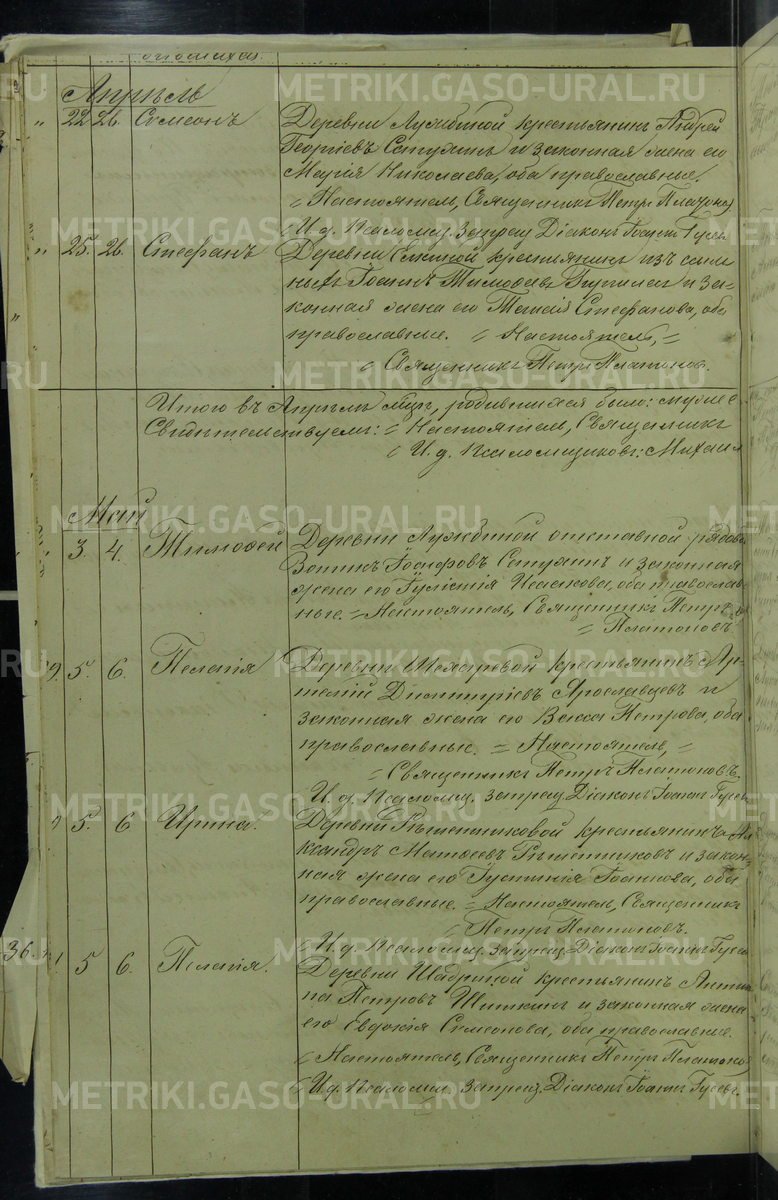 Апрѣль
22. 26. Сѵмеонъ
Деревни Лужбиной крестьянинъ Андрей
Георгіевъ и законная жена его
Марія Николаева, оба православные.
Настоятель, Священникъ Петръ Платоновъ
И. д. Псаломщ. запрещ. Діаконъ Іоаннъ Гусевъ
25. 26. Стефанъ
Деревни крестьянинъ изъ ссыль
ныхъ Іоаннъ Тимофеевъ и за-
конная жена его Стефанова, оба
православные. Настоятель,
Священникъ Петръ Платоновъ.
Итого въ Апрѣлѣ мцѣ, родившихся было: мужес
Свидѣтельствуемъ: Настоятель, Священникъ
И. д. Псаломщиковъ: Михаил
Май
3. 4. Тимофей
Деревни Лужбиной отставной рядовой
Іосифовъ и законная
жена его Исаакова, оба православ
ные. Настоятель, Священникъ Петръ
Платоновъ
5. 6. Пелагія
Деревни крестьянинъ Ар-
темій Димитріевъ Ярославцевъ и
законная жена его Васса Петрова, оба
православные. Настоятель,
Священникъ Петръ Платоновъ.
И. д. Псаломщ. запрещ. Діаконъ Іоаннъ Гусевъ
5. 6 Ирина.
Деревни Рѣшетниковой крестьянинъ Ал
ксандръ Матѳеевъ Рѣшетниковъ и закон-
ная жена его Іустинія Іоаннова, оба
православные. Настоятель, Священникъ
Петръ Платоновъ.
И. д. Псаломщ. запрещ. Діаконъ Іоаннъ Гусевъ
36.
5 6. Пелагія.
Деревни Шабриной крестьянинъ Анти
па Петровъ и законная жена
его Евдокія Симеонова, оба православные.
Настоятель, Священникъ Петръ Платоновъ
И. д. Псаломщ. запрещ. Діаконъ Іоаннъ Гусевъ.
METRIKI.GASO-URAL.RU